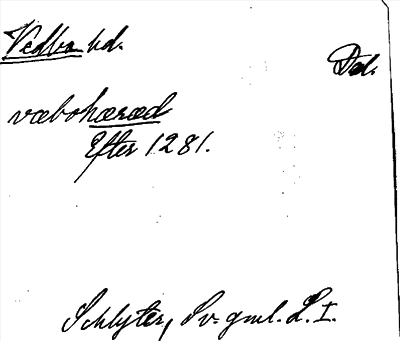 Vedbo hd.
Dal.
væbohæræd
Efter 1281.
Schlyter, Sv. gml. L. I.